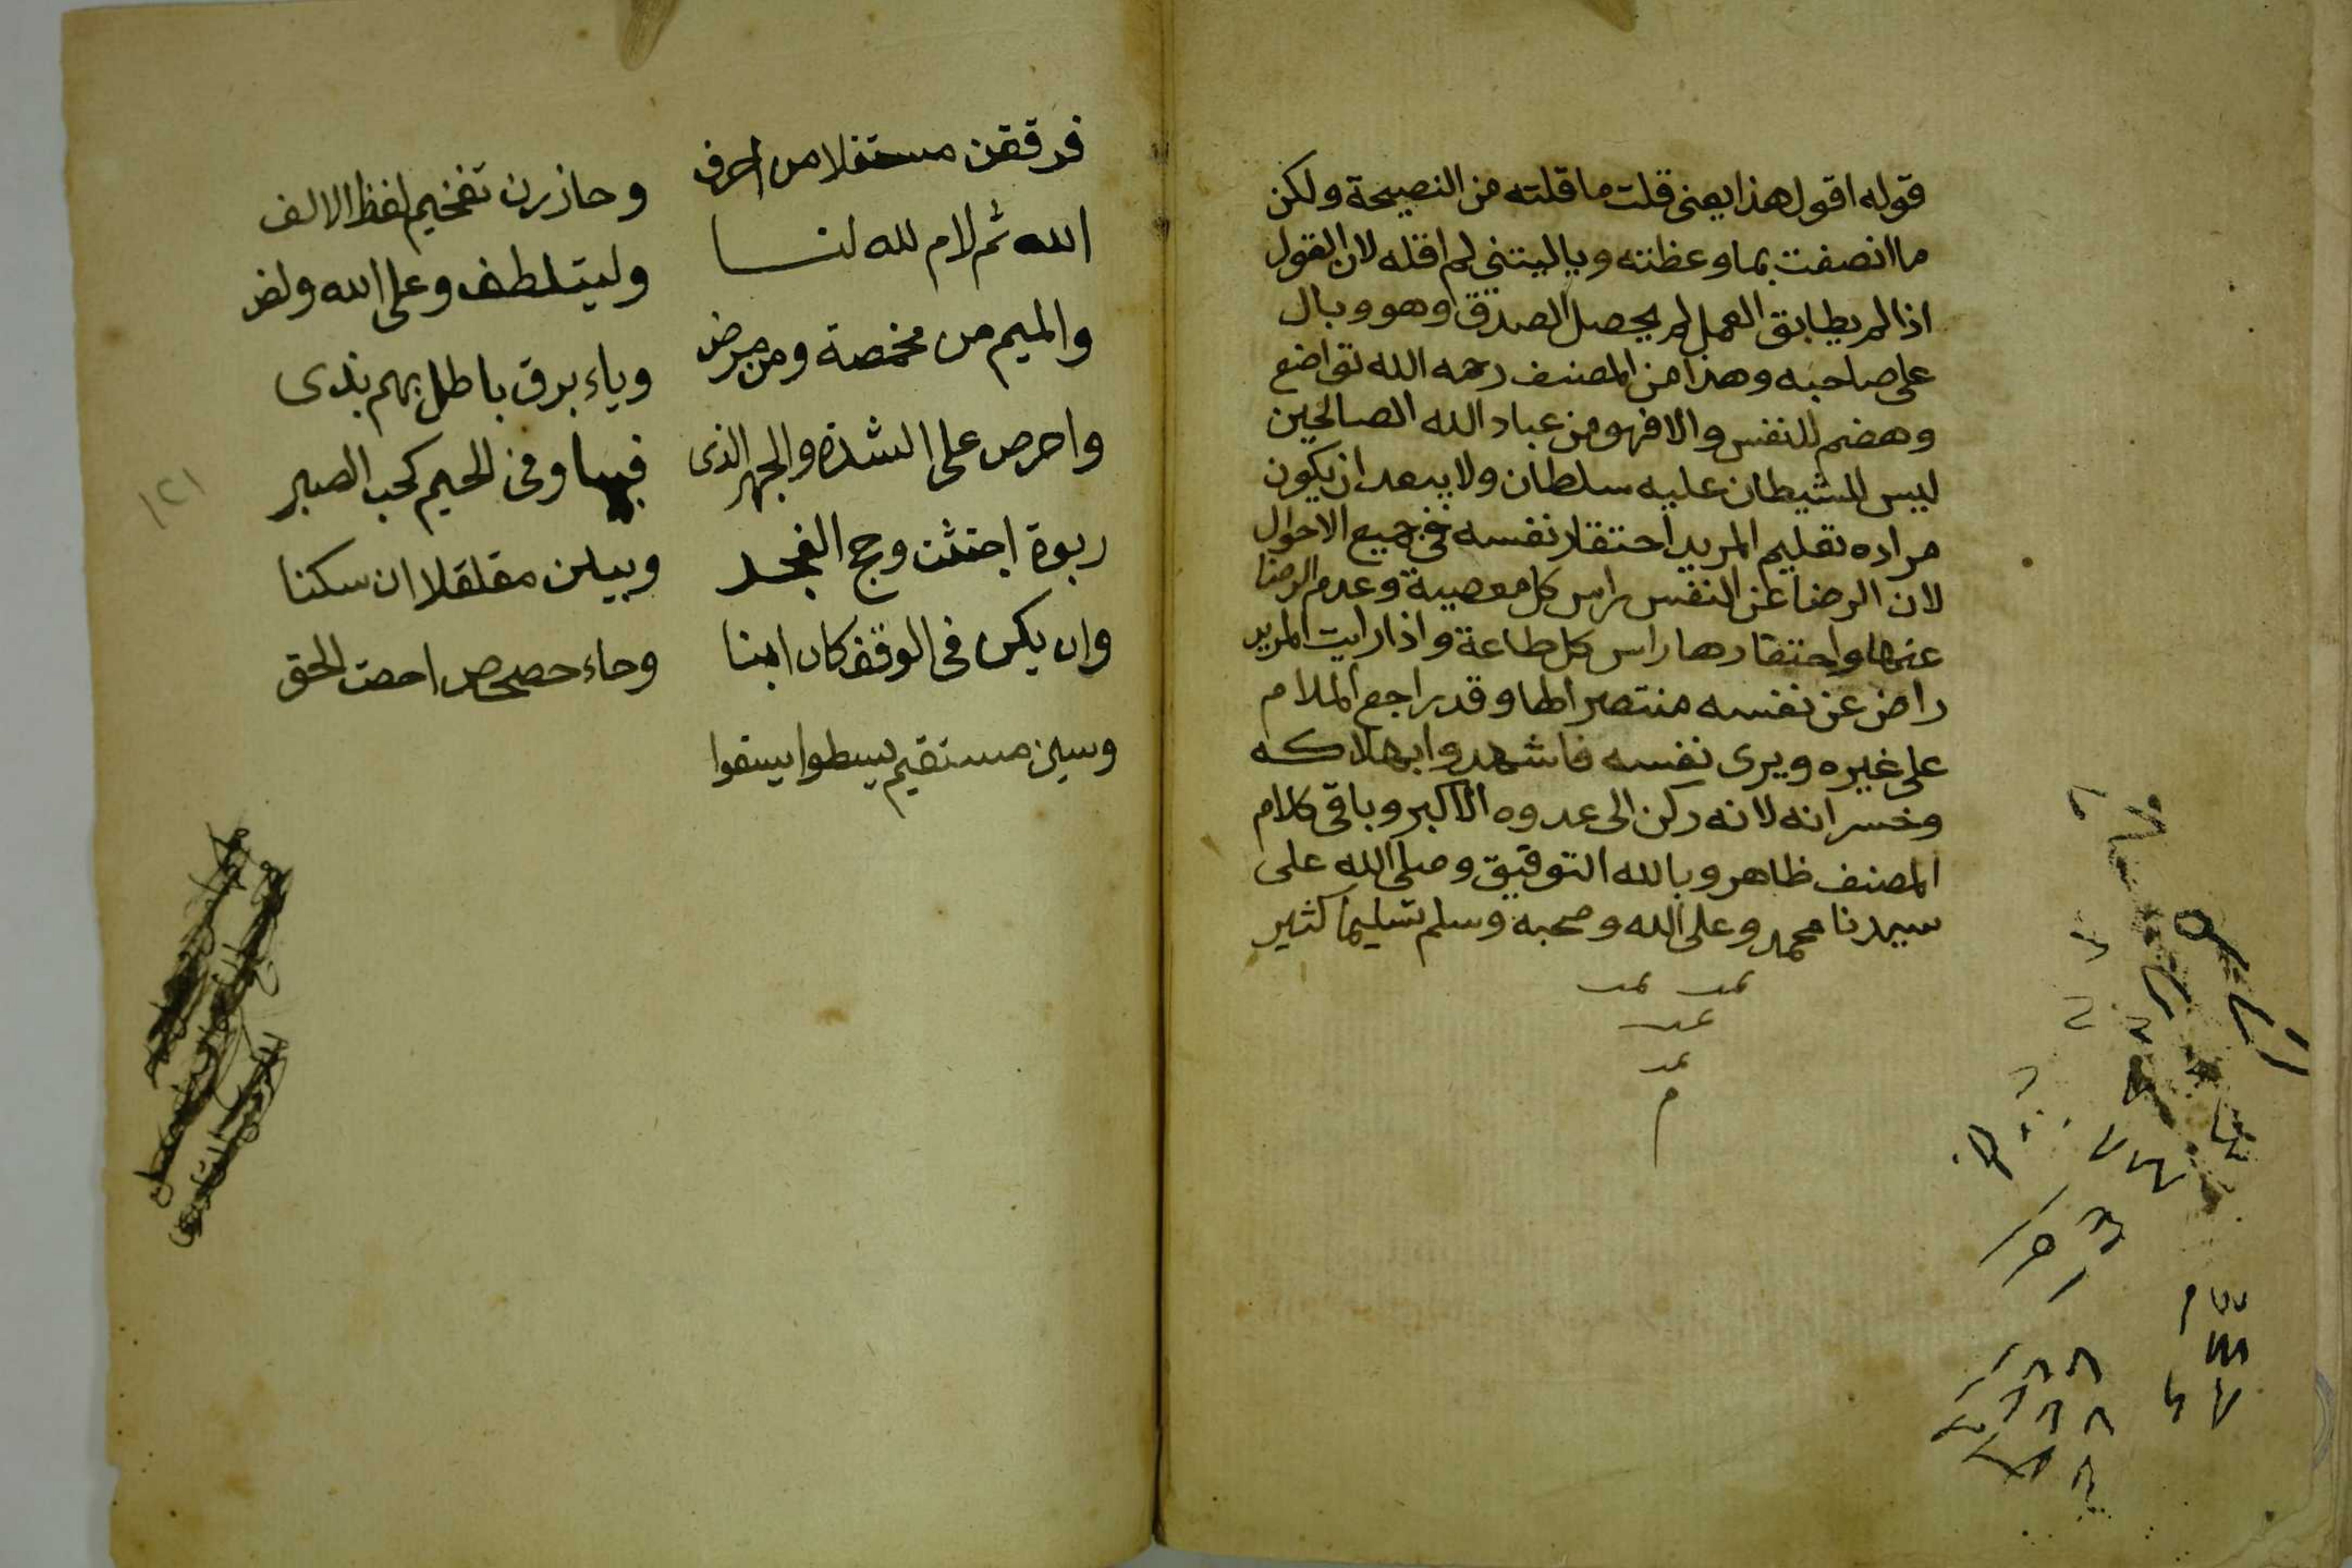 قوله اقول هذا يعنى قلت ما قلته من النصيحة ولكن
ما انصفت بما وعظته ويا ليتني لم اقله لان القول
اذا لم يطابق العمل لم يحصل الصدق وهو وبال
على صاحبه وهذا من المصنف رحمه الله تواضع
وهضم للنفس والا فهو من عباد الله الصالحين
ليس للشيطان عليه سلطان ولا يبعد ان يكون
مراده تعليم المريد احتقار نفسه في جميع الاحوال
لان الرضا عن النفس راس كل معصية وعدم الرضا
عنها واحتقارها راس كل طاعة واذا رايت المريد
راض عن نفسه منتصرا لها وقد راجع الملام
على غيره ويرى نفسه فاشهدوا بهلاكه
وخسرانه لانه ركن الى عدوه الاكبر وباقي كلام
المصنف ظاهر وبالله التوفيق وصلى الله على
سيدنا محمد وعلى اله وصحبه وسلم تسليما كثير
م
فرققن مستفلا من احرف وحاذرن تفخيم لفظ الالف
الله ثم لام لله لنا وليتلطف وعلى الله ولض
والميم من مخمصة ومن مرض وباء برق باطل بهم بذى
واحرص على الشدة والجهر الذى فيها وفى الجيم كحب الصبر
ربوة اجتثت وحج الفجر وبينن مقلقلا ان سكنا
وان يكن فى الوقف كان ابينا وحاء حصحص احصت الحق
وسين مستقيم يسطوا يسقوا
١٢١